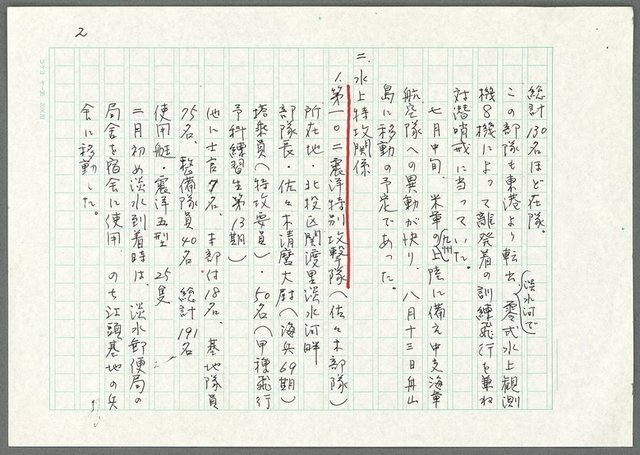 2
総計130名ほど在隊。
この部隊も東港より転出 零式水上観測
淡水河で
機8機によって離発着の訓練飛行を兼ね
対潜哨戒に当っていた。
七月中旬、米軍の上陸に備え中支海軍
九州
航空隊への異動が決り、八月十三日舟山
島に移動の予定であった。
二、水上特攻関係
1.第一〇二震洋特別攻撃隊(佐々木部隊)
所在地・北投区関渡里淡水河畔
部隊長・佐々木清麿大尉(海兵69期)
搭乗員(特攻要員)・50名(甲種飛行
予科練習生第13期)
他に士官7名、本部付18名、基地隊員
75名、整備隊員40名 総計191名
使用艇・震洋五型 25隻
二月初め淡水到着時は、淡水郵便局の
局舎を宿舎に使用、のち江頭基地の兵
舎に移動した。